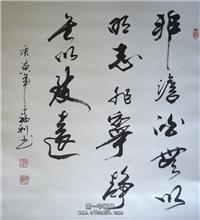 非澹泊無以
明志非寧靜
無以致遠
庚寅年